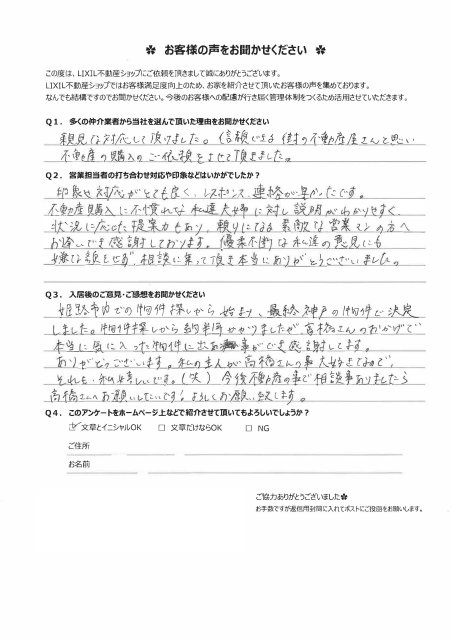 ✽ お客様の声をお聞かせください ✽
この度は、LIXIL不動産ショップにご依頼を頂きまして誠にありがとうございます。
LIXIL不動産ショップではお客様満足度向上のため、お家を紹介させて頂いたお客様の声を集めております。
なんでも結構ですのでお聞かせください。今後のお客様への配慮が行き届く管理体制をつくるため活用させていただきます。
Q1．多くの仲介業者から当社を選んで頂いた理由をお聞かせください
親見な対応して頂けました。信頼できる街の不動産屋さんと思い
不動産の購入のご依頼をさせて頂きました。
Q2．営業担当者の打ち合わせ対応や印象などはいかがでしたか？
印象や対応がとても良く、レスポンス、連絡が早かったです。
不動産購入に不慣れな私達夫婦に対し説明がわかりやすく、
状況に応じた提案力もあり、頼りになる素敵な営業マンの方へ
お会いでき感謝しております。優柔不断な私達の意見にも
嫌な顔をせず、相談に乗って頂き本当にありがとうございました。
Q3．入居後のご意見・ご感想をお聞かせください
姫路市内での物件探しから始まり、最終神戸の物件で決定
しました。物件探しから約半年かかりましたが、髙橋さんのおかげで
本当に気に入った物件に出会う事ができ感謝してます。
ありがとうございます。私の主人が髙橋さんの事大好きなので、
それも私嬉しいです。(笑) 今後不動産の事で相談事ありましたら
髙橋さんへお願いしたいです！よろしくお願い致します。
Q4．このアンケートをホームページ上などで紹介させて頂いてもよろしいでしょうか？
☑ 文章とイニシャルOK　□ 文章だけならOK　□ NG
ご住所
お名前
ご協力ありがとうございました✽
お手数ですが返信用封筒に入れてポストにご投函をお願いします。